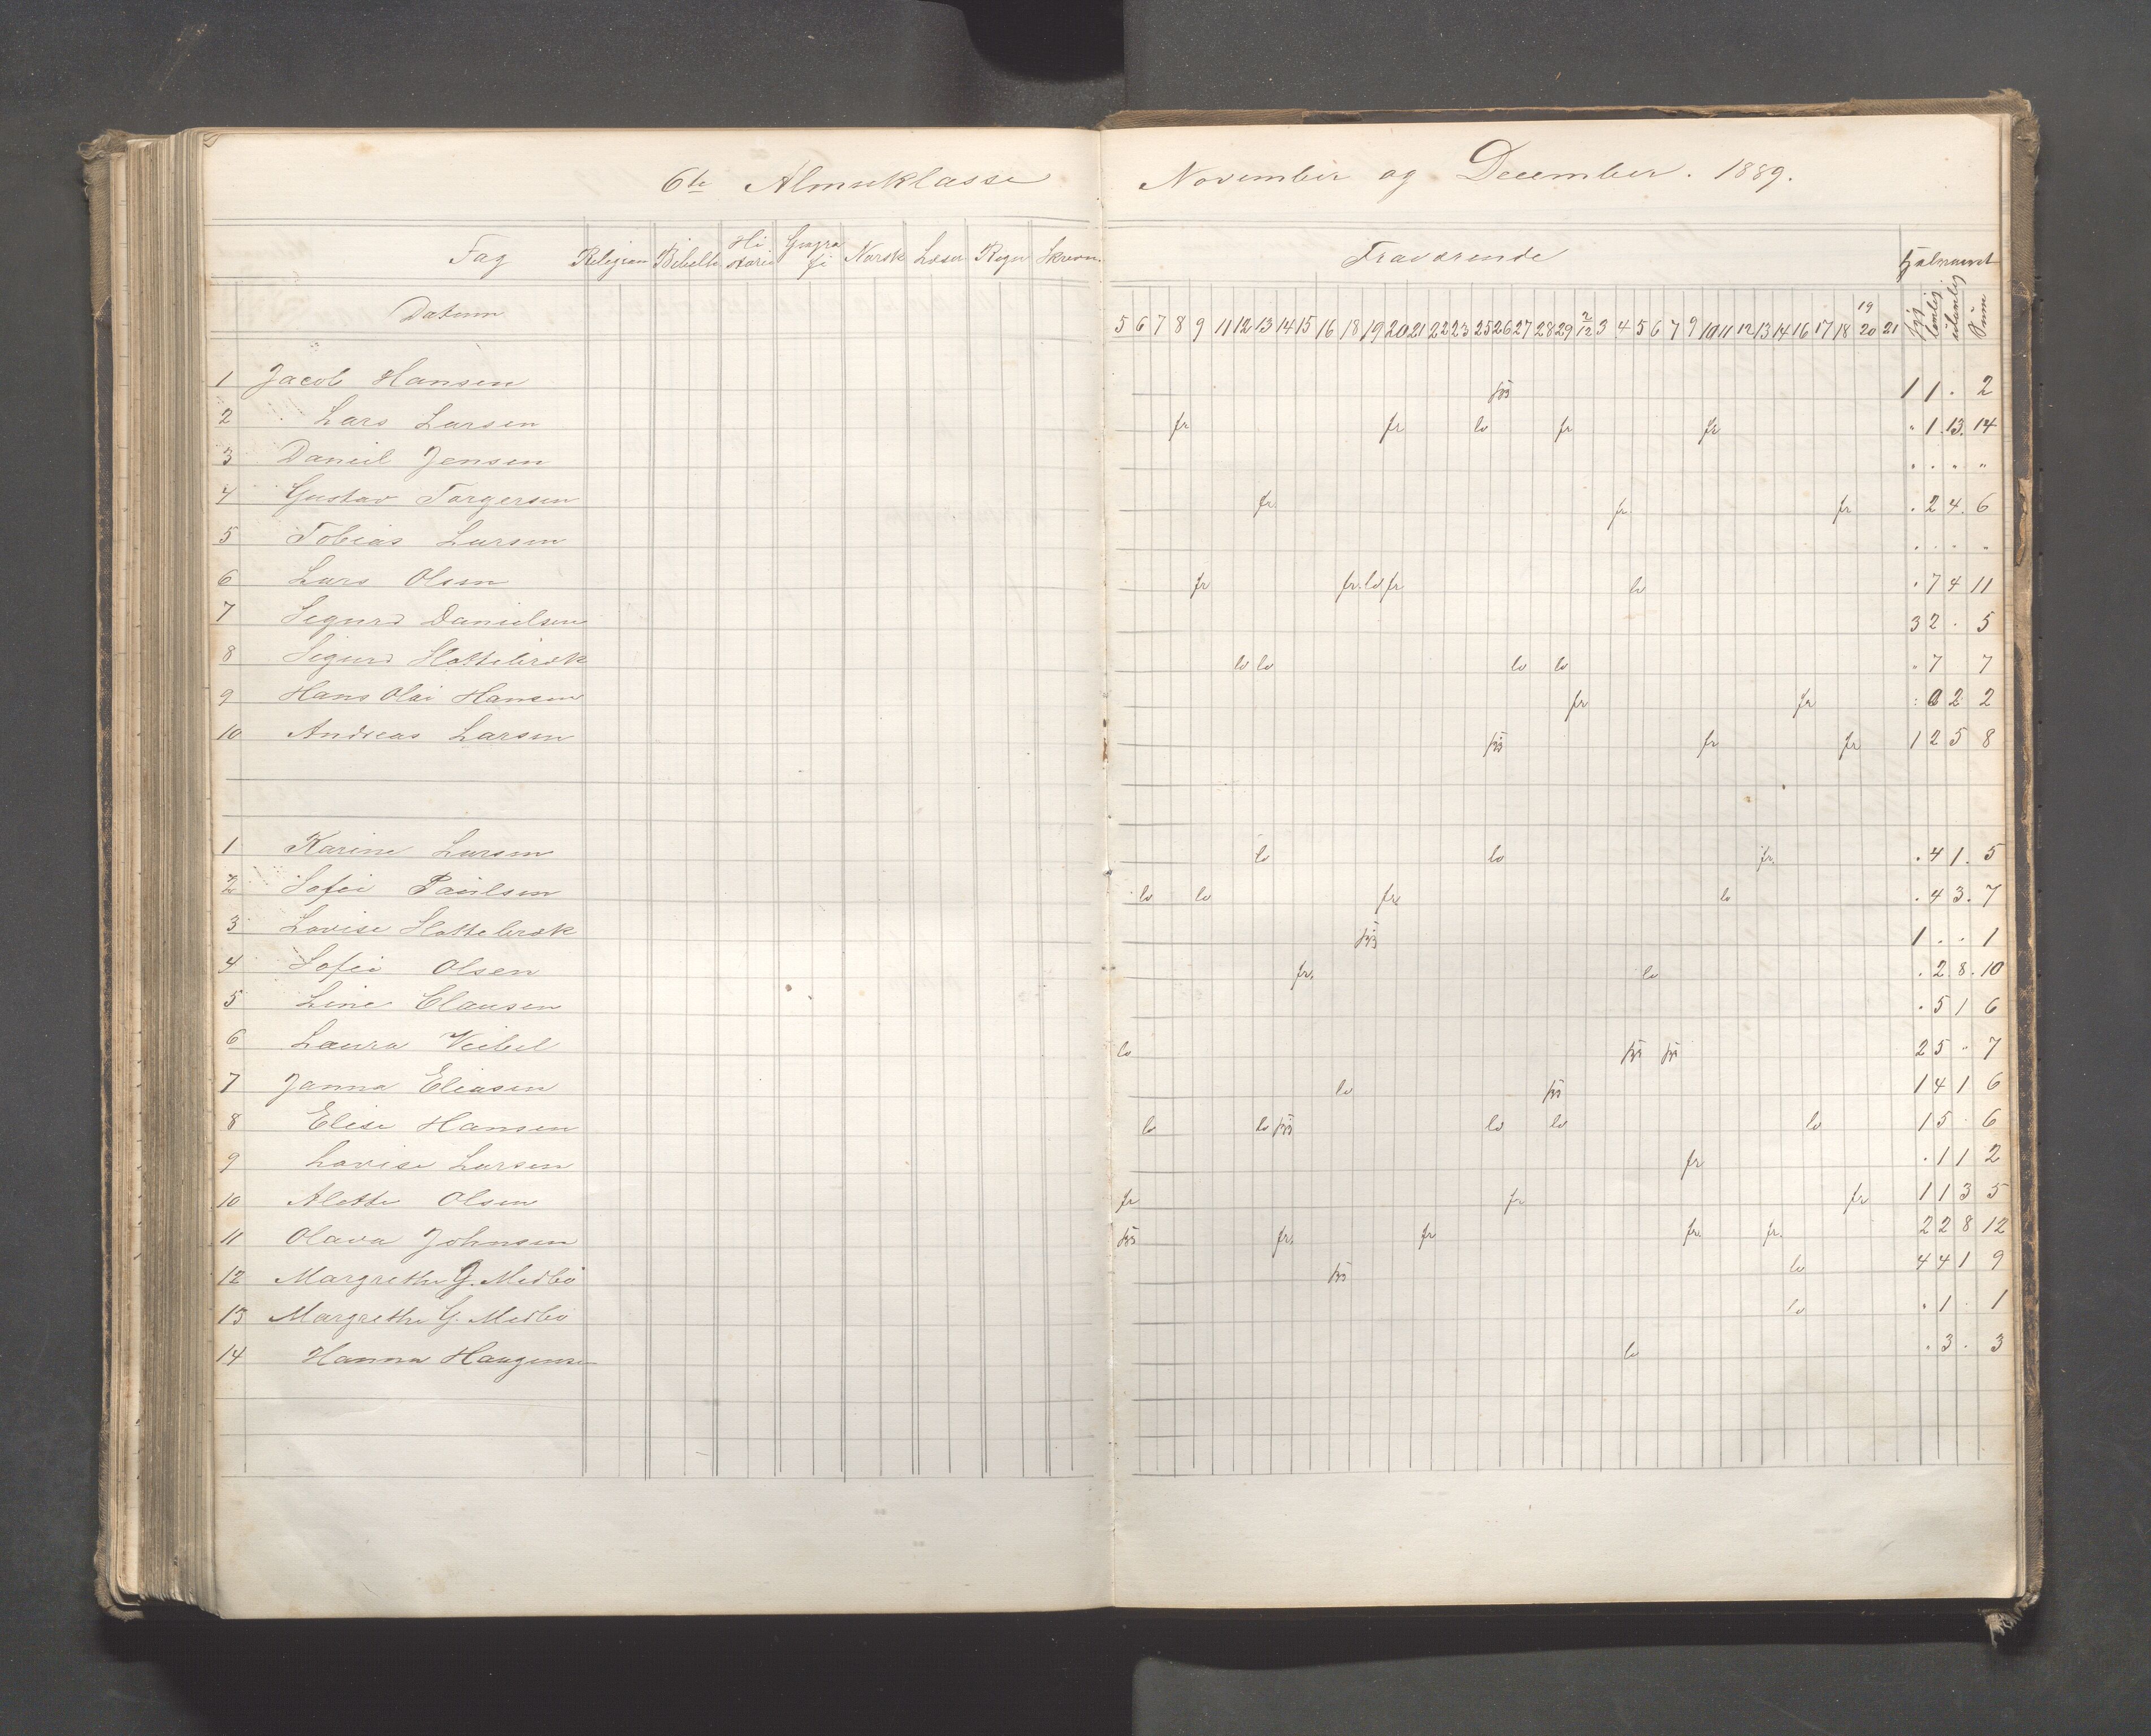 6te Almueklasse November og December. 1889.
Fag Religion Bibelh Hi storie Geogra fi Norsk Læsn Regn Skrivn. Fraværende Halvaaret
Datum 5 6 7 8 9 11 12 13 14 15 16 18 19 20 21 22 23 25 26 27 28 29 2/12 3 4 5 6 7 9 10 11 12 13 14 16 17 18 19 20 21 Syg lovlig ulovlig Sum
1 Jacob Hansen syg 1 1 . 2
2 Lars Larsen fr fr lo fr fr " 1 . 13 . 14
3 Daniel Jensen " . " "
4 Gustav Torgersen fr. fr. fr . 2 4 . 6
5 Tobias Larsen . . . "
6 Lars Olsen fr fr. lo fr lo . 7 4 11
7 Sigurd Danielsen 3 2 . 5
8 Sigurd Slottebræk lo lo lo lo " 7 7
9 Hans Olai Hansen fr fr : 0 2 2
10 Andreas Larsen syg fr fr 1 2 5 8
1 Karine Larsen lo lo fr. . 4 1 . 5
2 Sofie Paulsen lo lo fr lo . 4 3 . 7
3 Lovise Slottebræk syg 1 . . 1
4 Sofie Olsen fr. lo . 2 8 . 10
5 Line Clausen . 5 1 6
6 Laura Veibel lo syg syg 2 5 " 7
7 Janna Eliasen lo syg 1 4 1 6
8 Elise Hansen lo lo syg lo lo lo 1 5 . 6
9 Lovise Larsen fr . 1 1 2
10 Alette Olsen fr fr fr 1 1 3 5
11 Olava Johnsen syg fr. fr fr. fr. 2 2 8 12
12 Margrethe J. Medbö syg lo 4 4 1 9
13 Margrethe G. Medbö lo . 1 . 1
14 Hanna Haugensen lo . 3 . 3